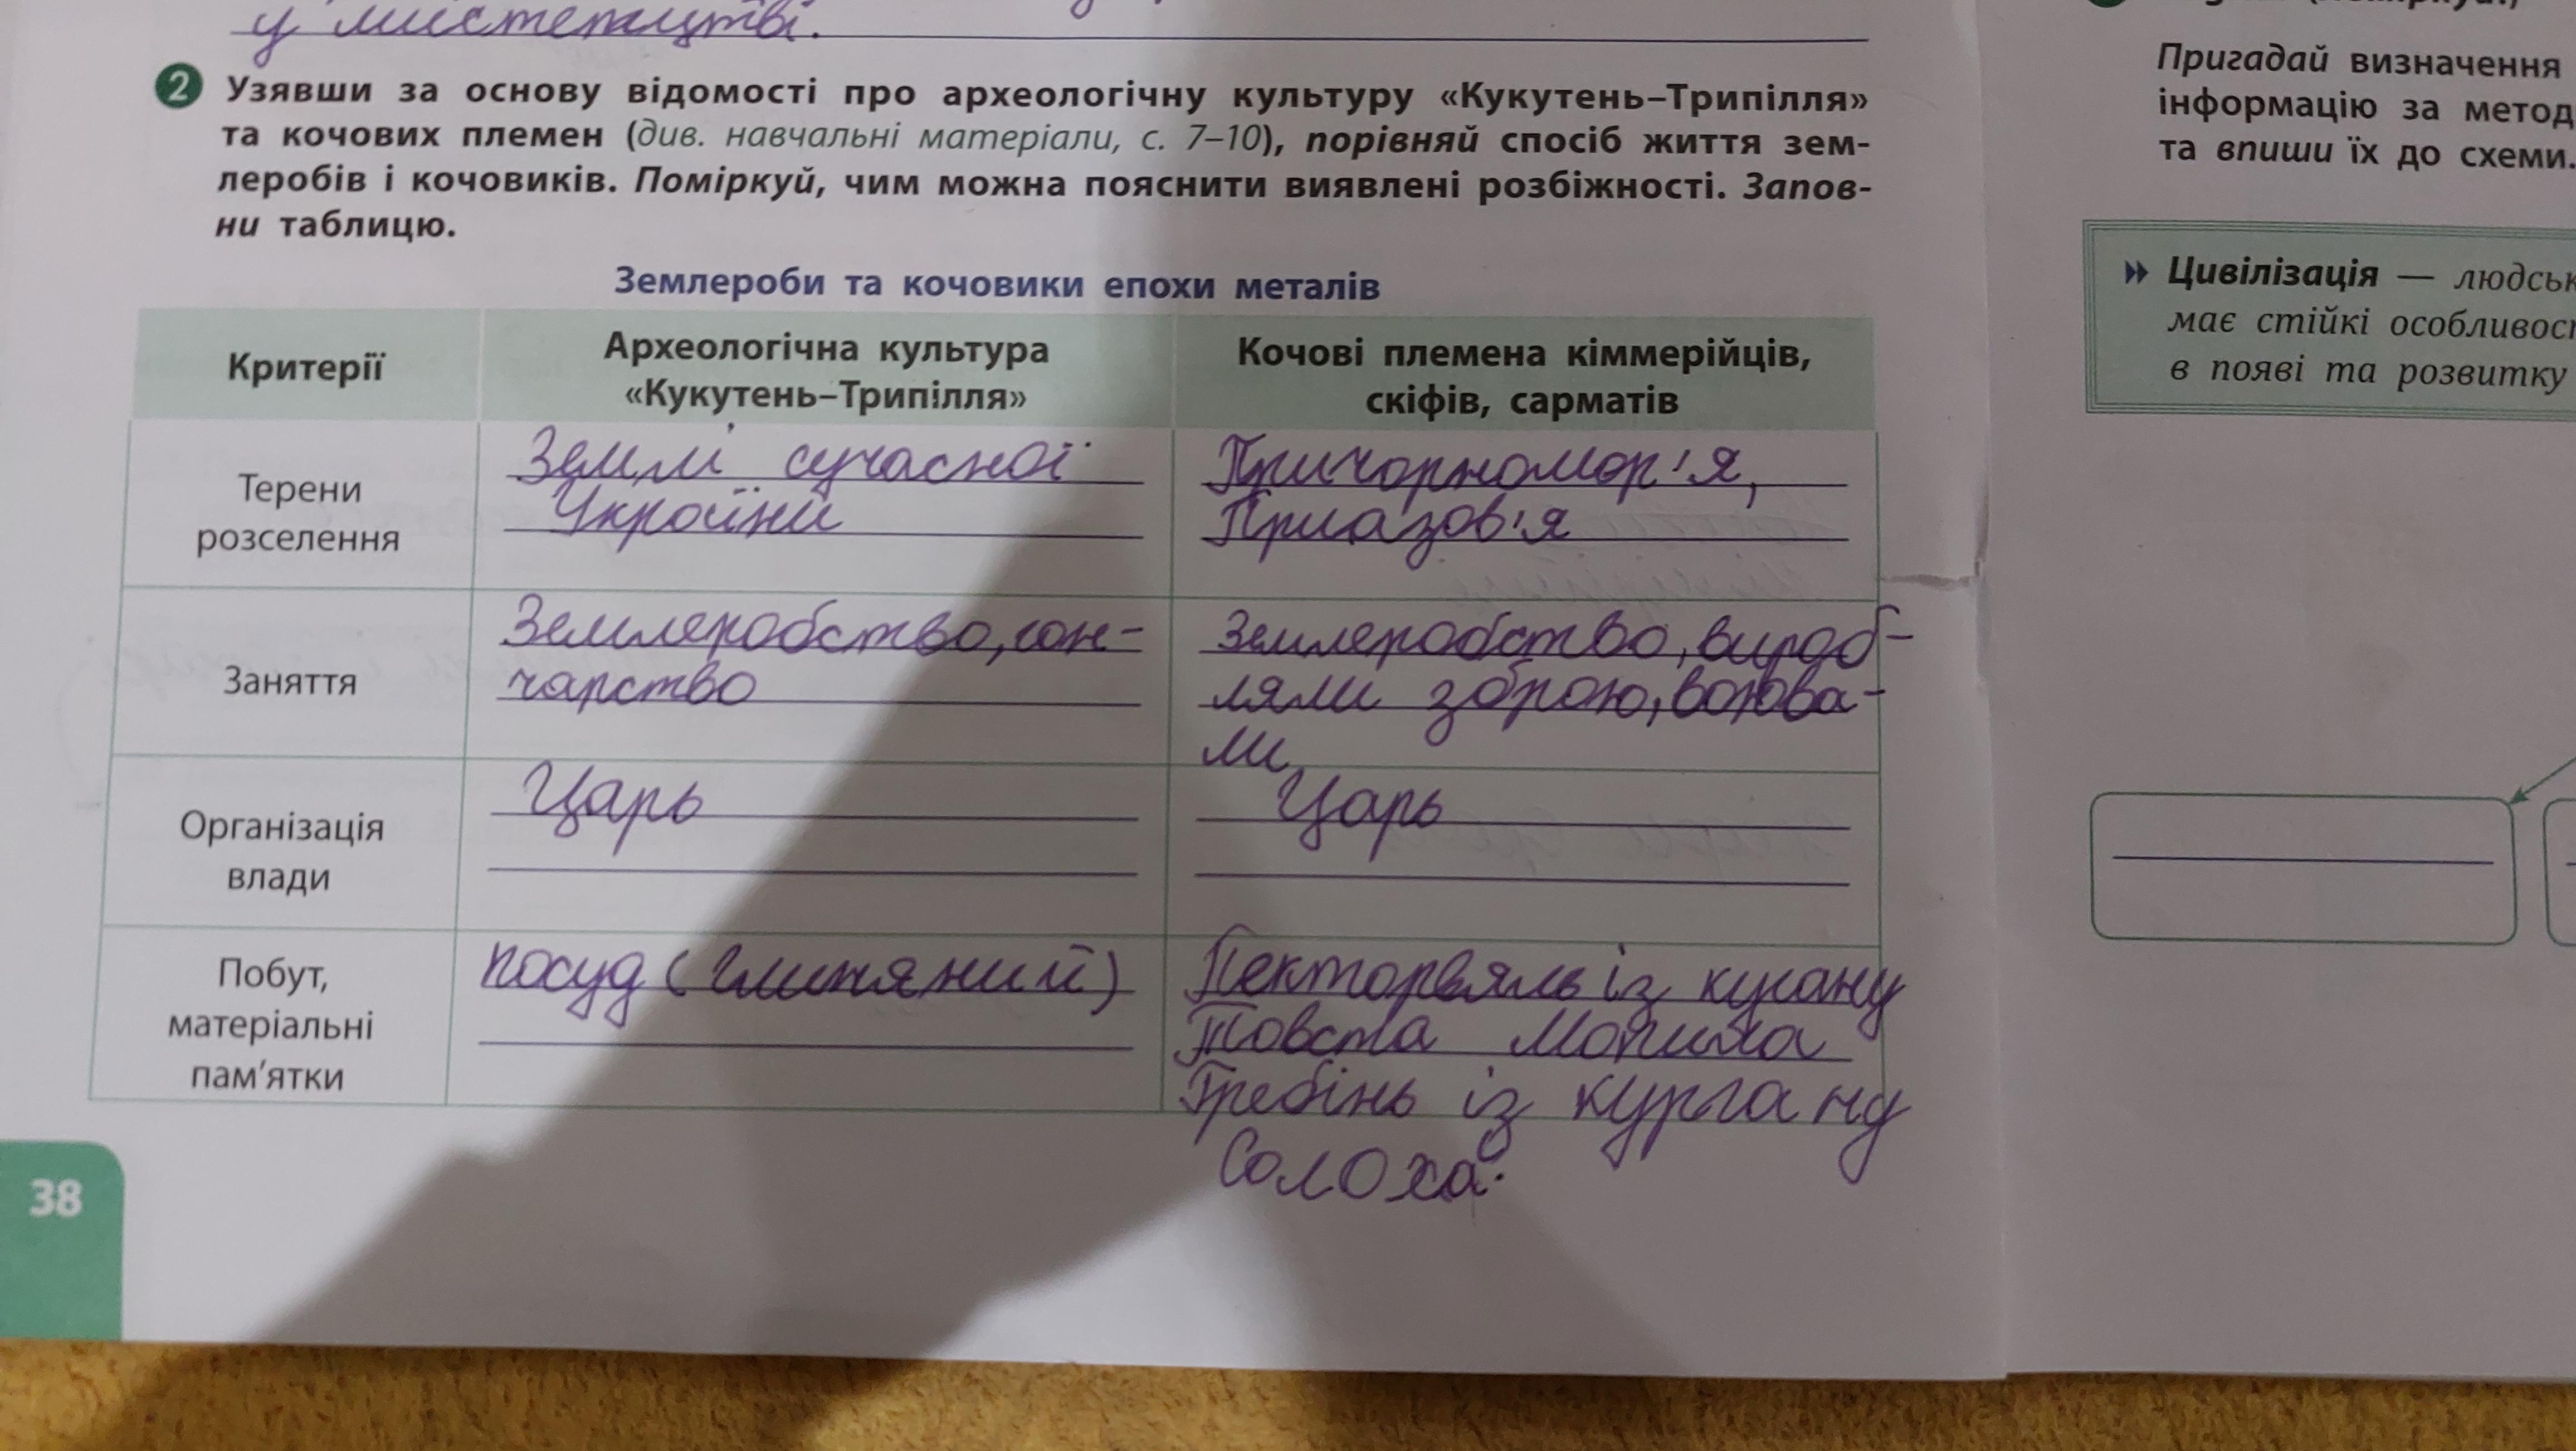 у мистецтві.
2 Узявши за основу відомості про археологічну культуру «Кукутень–Трипілля»
та кочових племен (див. навчальні матеріали, с. 7–10), порівняй спосіб життя зем-
леробів і кочовиків. Поміркуй, чим можна пояснити виявлені розбіжності. Запов-
ни таблицю.
Землероби та кочовики епохи металів
Критерії
Археологічна культура
«Кукутень–Трипілля»
Кочові племена кіммерійців,
скіфів, сарматів
Терени
розселення
Землі сучасної
Україйни
Причорномор'я,
Приазов'я
Заняття
Землеробство, гон-
чарство
Землеробство, вироб-
ляли зброю, воюва-
ли
Організація
влади
Царь
Царь
Побут,
матеріальні
пам'ятки
посуд (глиняний)
із кугану
Товста Могила
Гребінь із кургану
Солоха.
38
Пригадай визначення
інформацію за метод
та впиши їх до схеми.
Цивілізація — людськ
має стійкі особливос
в появі та розвитку